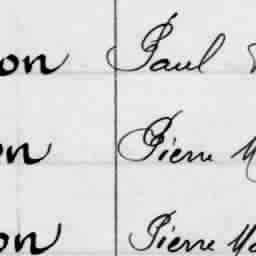 on Paul
on Pierre
on Pierre